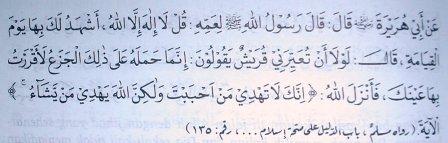 عَنْ أَبِي هُرَيْرَةَ ﷺ قَالَ: قَالَ رَسُولُ اللهِ ﷺ لِعَمِّهِ: قُلْ لَا إِلٰهَ إِلَّا اللهُ، أَشْهَدُ لَكَ بِهَا يَوْمَ
الْقِيَامَةِ، قَالَ: لَوْلَا أَنْ تُعَيِّرَنِي قُرَيْشٌ يَقُولُونَ: إِنَّمَا حَمَلَهُ عَلَى ذٰلِكَ الْجَزَعُ لَأَقْرَرْتُ
بِهَا عَيْنَكَ، فَأَنْزَلَ اللهُ: ﴿إِنَّكَ لَا تَهْدِي مَنْ أَحْبَبْتَ وَلٰكِنَّ اللهَ يَهْدِي مَنْ يَّشَاءُ﴾
الْآيَةَ. (رواه مسلم، باب الدليل على صحة إسلام ...، رقم: ١٣٥)